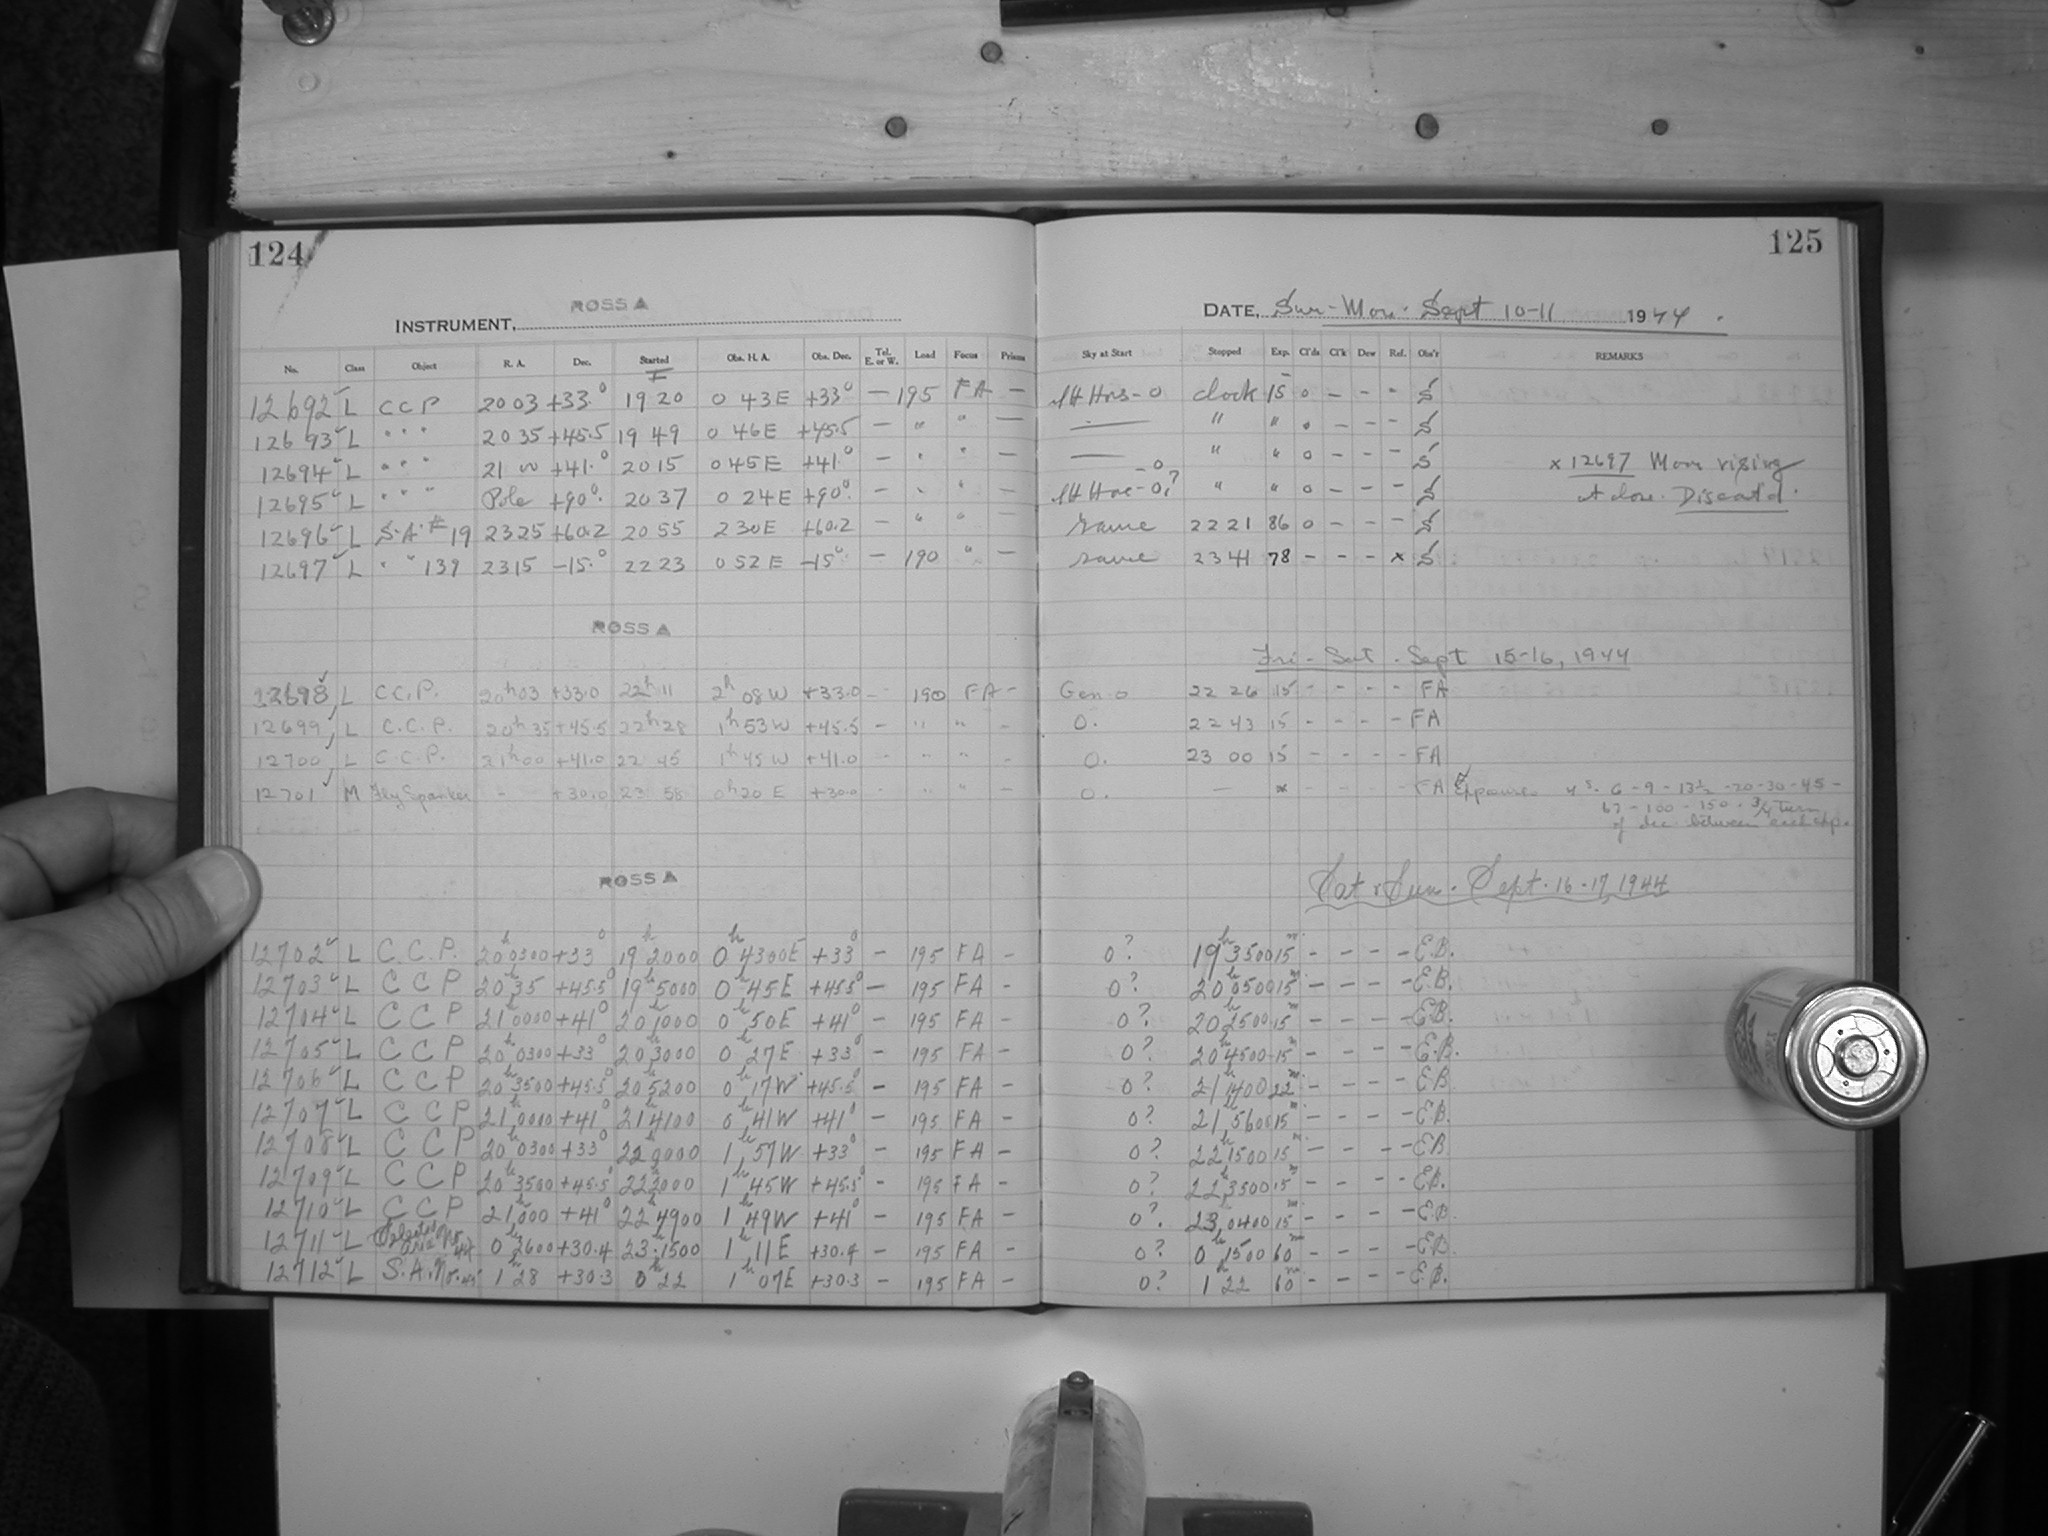 124
125
ROSS A
INSTRUMENT,
DATE, Sun-Mon. Sept 10-11 1944.
No. Class Object R. A. Dec. Started Obs. H. A. Obs. Dec. Tel. E. or W. Load Focus Prisms Sky at Start Stopped Exp. Cl'ds Cl'k Dew Ref. Obs'r REMARKS
12692 L CCP 20 03 +33.° 19 20 0 43E +33° — 195 FA — - 0 clock 15 0 - - - S
12693 L " " " 20 35 +45.5 19 49 0 46E +45.5 — " " — — " " 0 - - - S
12694 L " " " 21 00 +41.° 20 15 0 45E +41.° — " " — — " " 0 - - - S x 12697 Moon rising
12695 L " " " Pole +90°. 20 37 0 24E +90°. — " " — -0? " " 0 - - - S at close. Discard.
12696 L S.A.# 19 23 25 +60.2 20 55 2 30E +60.2 — " " — same 22 21 86 0 - - - S
12697 L " " 139 23 15 -15.° 22 23 0 52 E -15° — 190 " — same 23 41 78 - - - x S
ROSS A
Fri - Sat. Sept 15-16, 1944
12698 L C.C.P. 20h03 +33.0 22h11 2h 08W +33.0 - 190 FA - Gen-0 22 26 15 - - - - FA
12699 L C.C.P. 20h35 +45.5 22h28 1h 53W +45.5 - " " - 0. 22 43 15 - - - - FA
12700 L C.C.P. 21h00 +41.0 22 45 1h 45W +41.0 - " " - 0. 23 00 15 - - - - FA
12701 M Fly Spanker - +30.0 23 58 0h20 E +30.0 - " " - 0. — * - - - - FA Exposures 4s- 6 - 9 - 13½ - 20 - 30 - 45 -
67 - 100 - 150 . 3/4 turn
of dec between each exp.
ROSS A
Sat & Sun. Sept. 16-17, 1944
12702 L C.C.P. 20h0300 +33° 19h2000 0h 4300E +33° — 195 FA - 0? 19h3500 15m - - - - E.B.
12703 L C C P 20h35 +45.5° 19h5000 0h 45E +45.5° — 195 FA - 0? 20h0500 15m - - - - E.B.
12704 L C C P 21h0000 +41° 20h1000 0h 50E +41° — 195 FA - 0? 20h2500 15m - - - - E.B.
12705 L C C P 20h0300 +33° 20h3000 0h 27E +33° — 195 FA - 0? 20h4500 15m - - - - E.B.
12706 L C C P 20h3500 +45.5° 20h5200 0h 17W +45.5° — 195 FA - 0? 21h1400 22m - - - - E.B.
12707 L C C P 21h0000 +41° 21h4100 0h 41W +41° — 195 FA - 0? 21h5600 15m - - - - E.B.
12708 L C C P 20h0300 +33° 22h0000 1h 57W +33° — 195 FA - 0? 22h1500 15m - - - - E.B.
12709 L C C P 20h3500 +45.5° 22h2000 1h 45W +45.5° — 195 FA - 0? 22h3500 15m - - - - E.B.
12710 L C C P 21h000 +41° 22h4900 1h 49W +41° — 195 FA - 0? 23h0400 15m - - - - E.B.
12711 L Selected area No. 44 0h3600 +30.4 23h1500 1h 11E +30.4 — 195 FA - 0? 0h1500 60m - - - - E.B.
12712 L S.A. No. 45 1h28 +30.3 0h22 1h 07E +30.3 — 195 FA - 0? 1h22 60m - - - - E.B.